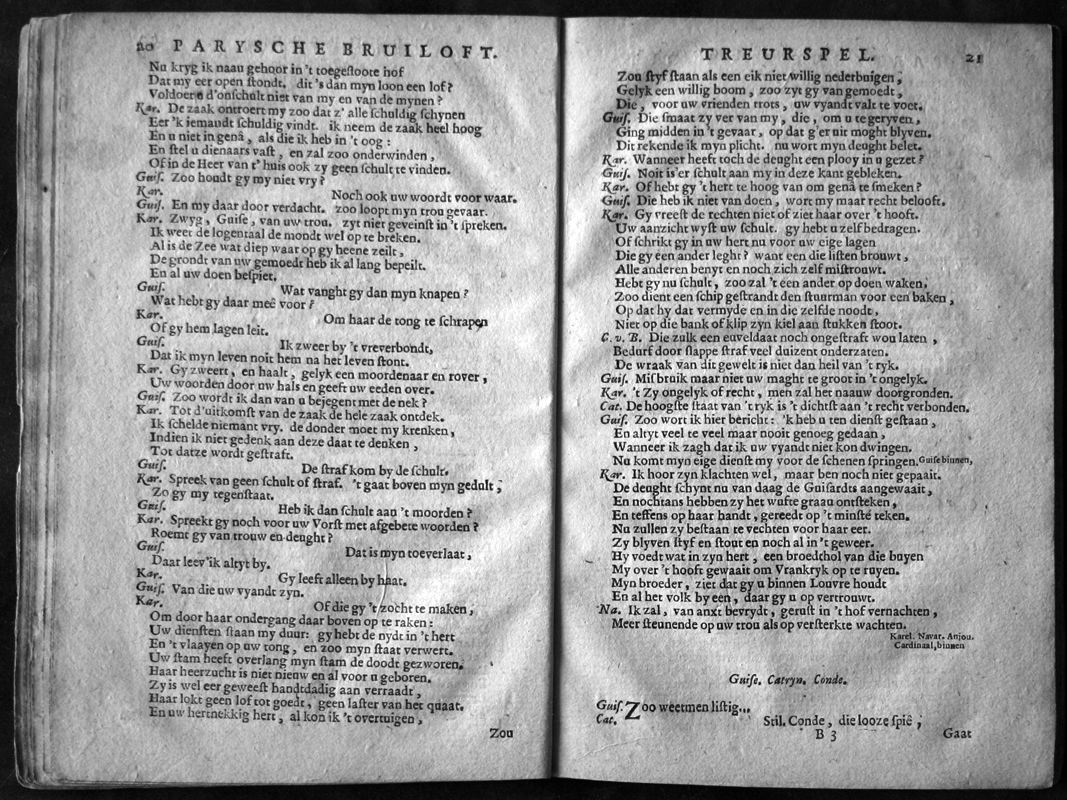 20 PARYSCHE BRUILOFT.
Nu kryg ik naau gehoor in 't toegeſtoote hof
Dat my eer open ſtondt. dit 's dan myn loon een lof?
Voldoet d'onſchult niet van my en van de mynen?
Kar. De zaak ontroert my zoo dat z' alle ſchuldig ſchynen
Eer 'k iemandt ſchuldig vindt. ik neem de zaak heel hoog
En u niet in genâ, als die ik heb in 't oog:
En ſtel u dienaars vaſt, en zal zoo onderwinden,
Of in de Heer van t' huis ook zy geen ſchult te vinden.
Guiſ. Zoo houdt gy my niet vry?
Kar. Noch ook uw woordt voor waar.
Guiſ. En my daar door verdacht. zoo loopt myn trou gevaar.
Kar. Zwyg, Guiſe, van uw trou. zyt niet geveinſt in 't ſpreken.
Ik weet de logentaal de mondt wel op te breken.
Al is de Zee wat diep waar op gy heene zeilt,
De grondt van uw gemoedt heb ik al lang bepeilt.
En al uw doen beſpiet.
Guiſ. Wat vanght gy dan myn knapen?
Wat hebt gy daar meê voor?
Kar. Om haar de tong te ſchrapen
Of gy hem lagen leit.
Guiſ. Ik zweer by 't vreverbondt,
Dat ik myn leven noit hem na het leven ſtont.
Kar. Gy zweert, en haalt, gelyk een moordenaar en rover,
Uw woorden door uw hals en geeft uw eeden over.
Guiſ. Zoo wordt ik dan van u bejegent met de nek?
Kar. Tot d'uitkomſt van de zaak de hele zaak ontdek.
Ik ſchelde niemant vry. de donder moet my krenken,
Indien ik niet gedenk aan deze daat te denken,
Tot datze wordt geſtraft.
Guiſ. De ſtraf kom by de ſchult.
Kar. Spreek van geen ſchult of ſtraf. 't gaat boven myn gedult,
Zo gy my tegenſtaat.
Guiſ. Heb ik dan ſchult aan 't moorden?
Kar. Spreekt gy noch voor uw Vorſt met afgebete woorden?
Roemt gy van trouw en deught?
Guiſ. Dat is myn toeverlaat,
Daar leev' ik altyt by.
Kar. Gy leeft alleen by haat.
Guiſ. Van die uw vyandt zyn.
Kar. Of die gy 't zocht te maken,
Om door haar ondergang daar boven op te raken:
Uw dienſten ſtaan my duur: gy hebt de nydt in 't hert
En 't vlaayen op uw tong, en zoo myn ſtaat verwert.
Uw ſtam heeft overlang myn ſtam de doodt gezworen.
Haar heerzucht is niet nieuw en al voor u geboren.
Zy is wel eer geweeſt handtdadig aan verraadt,
Haar lokt geen lof tot goedt, geen laſter van het quaat.
En uw hertnekkig hert, al kon ik 't overtuigen,
Zou
TREURSPEL. 21
Zou ſtyf ſtaan als een eik niet willig nederbuigen,
Gelyk een willig boom, zoo zyt gy van gemoedt,
Die, voor uw vrienden trots, uw vyandt valt te voet.
Guiſ. Die ſmaat zy ver van my, die, om u te geryven,
Ging midden in 't gevaar, op dat g'er uit moght blyven.
Dit rekende ik myn plicht. nu wort myn deught belet.
Kar. Wanneer heeft toch de deught een plooy in u gezet?
Guiſ. Noit is'er ſchult aan my in deze kant gebleken.
Kar. Of hebt gy 't hert te hoog van om genâ te ſmeken?
Guiſ. Die heb ik niet van doen, wort my maar recht belooft.
Kar. Gy vreeſt de rechten niet of ziet haar over 't hooft.
Uw aanzicht wyſt uw ſchult. gy hebt u zelf bedragen.
Of ſchrikt gy in uw hert nu voor uw eige lagen
Die gy een ander leght? want een die liſten brouwt,
Alle anderen benyt en noch zich zelf miſtrouwt.
Hebt gy nu ſchult, zoo zal 't een ander op doen waken.
Zoo dient een ſchip geſtrandt den ſtuurman voor een baken,
Op dat hy dat vermyde en in die zelfde noodt,
Niet op die bank of klip zyn kiel aan ſtukken ſtoot.
C. v. B. Die zulk een euveldaat noch ongeſtraft wou laten,
Bedurf door ſlappe ſtraf veel duizent onderzaten.
De wraak van dit gewelt is niet dan heil van 't ryk.
Guiſ. Miſbruik maar niet uw maght te groot in 't ongelyk.
Kar. 't Zy ongelyk of recht, men zal het naauw doorgronden.
Cat. De hoogſte ſtaat van 't ryk is 't dichtſt aan 't recht verbonden.
Guiſ. Zoo wort ik hier bericht: 'k heb u ten dienſt geſtaan,
En altyt veel te veel maar nooit genoeg gedaan,
Wanneer ik zagh dat ik uw vyandt niet kon dwingen.
Nu komt myn eige dienſt my voor de ſchenen ſpringen. Guiſe binnen,
Kar. Ik hoor zyn klachten wel, maar ben noch niet gepaait.
De deught ſchynt nu van daag de Guiſardts aangewaait,
En nochtans hebben zy het wufte graau ontſteken,
En teffens op haar handt, gereedt op 't minſte teken.
Nu zullen zy beſtaan te vechten voor haar eer.
Zy blyven ſtyf en ſtout en noch al in 't geweer.
Hy voedt wat in zyn hert, een broedtchol van die buyen
My over 't hooft gewaait om Vrankryk op te ruyen.
Myn broeder, ziet dat gy u binnen Louvre houdt
En al het volk by een, daar gy u op vertrouwt.
Na. Ik zal, van anxt bevrydt, geruſt in 't hof vernachten,
Meer ſteunende op uw trou als op verſterkte wachten.
Karel. Navar. Anjou.
Cardinaal, binnen
Guiſe. Catryn. Conde.
Guiſ. Zoo weetmen liſtig...
Cat. Stil. Conde, die looze ſpiê,
B 3 Gaat